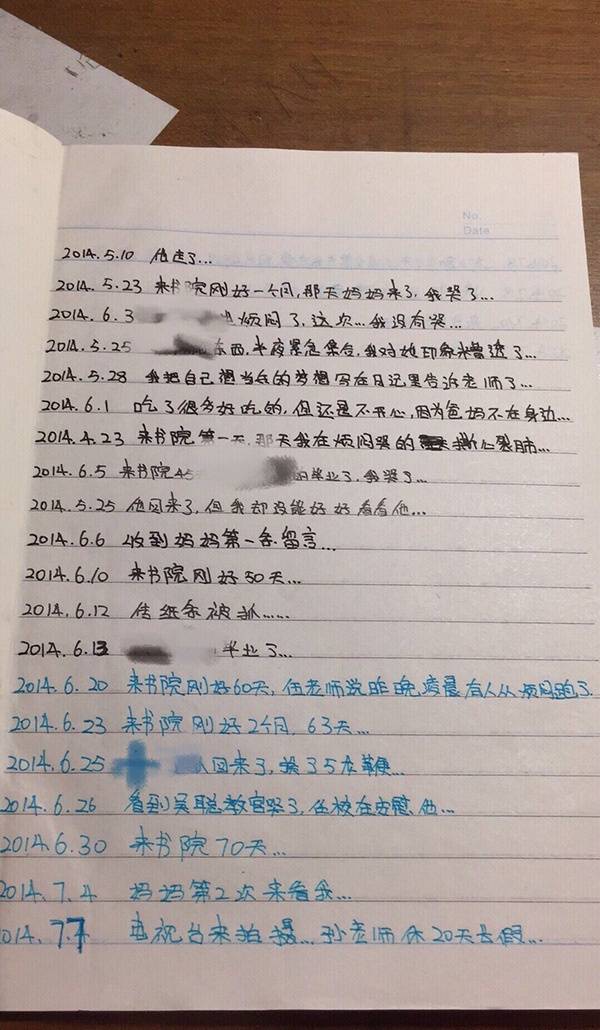 No.
Date
2014.5.10 他走了...
2014.5.23 来书院刚好一个月,那天妈妈来了,我哭了...
2014.6.3 烦闷了,这次...我没有哭...
2014.5.25 东西,半夜紧急集合,我对她印象糟透了...
2014.5.28 我把自己想当兵的梦想写在日记里告诉老师了...
2014.6.1 吃了很多好吃的,但还是不开心,因为爸妈不在身边...
2014.4.23 来书院第一天,那天我在烦闷哭的撕心裂肺...
2014.6.5 来书院45 毕业了,我哭了...
2014.5.25 他回来了,但我却没能好好看看他...
2014.6.6 收到妈妈第一条留言...
2014.6.10 来书院刚好50天...
2014.6.12 传纸条被抓......
2014.6.13 毕业了...
2014.6.20 来书院刚好60天,伍老师说昨晚凌晨有人从烦闷跑了.
2014.6.23 来书院刚好2个月,63天...
2014.6.25 回来了,挨了5龙鞭...
2014.6.26 看到吴聪教官哭了,伍校在安慰他...
2014.6.30 来书院70天...
2014.7.4 妈妈第2次来看我...
2014.7.7 电视台来拍摄...孙老师休20天长假...